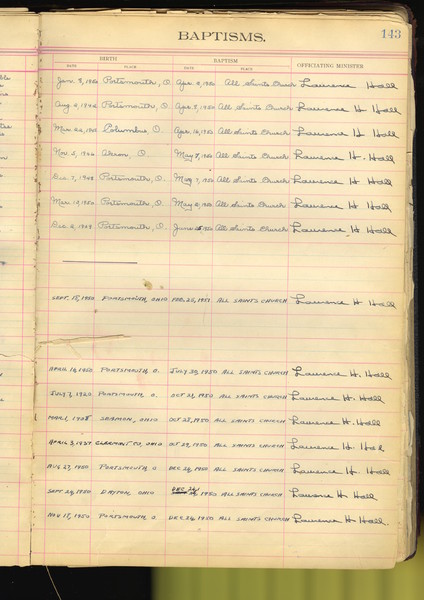 BAPTISMS.
143
BIRTH BAPTISM OFFICIATING MINISTER
DATE PLACE DATE PLACE
Portsmouth, O. Apr. All Saints Church Lawrence Hall
Aug Portsmouth, O. Apr. 9, 1950 All Saints Church Lawrence H. Hall
Mar. Columbus, O. Apr. 16, 1950 All Saints Church Lawrence H. Hall
Nov. 5, Akron, O. May 7, 1950 All Saints Church Lawrence H. Hall
Dec 7, 1948 Portsmouth, O. May 7, 1950 All Saints Church Lawrence H. Hall
Mar. 19, 1950 Portsmouth, O. May 1950 All Saints Church Lawrence H. Hall
Dec Portsmouth, O. June 1950 All Saints Church Lawrence H. Hall
SEPT. 15, 1950 PORTSMOUTH, OHIO FEB. 25, 1951 ALL SAINTS CHURCH Lawrence H. Hall
APRIL 1950 PORTSMOUTH O. JULY 30, 1950 ALL SAINTS CHURCH Lawrence H. Hall
JULY 7, PORTSMOUTH, O. OCT 1950 ALL SAINTS CHURCH Lawrence H. Hall
MAR 1, 1938 OHIO OCT 1950 ALL SAINTS CHURCH Lawrence H. Hall
APRIL 3, 1937 CLERMONT CO, OHIO OCT 29, 1950 ALL SAINTS CHURCH Lawrence H. Hall
AUG 27, 1950 PORTSMOUTH O DEC 24, 1950 ALL SAINTS CHURCH Lawrence H. Hall
SEPT 24, 1950 DAYTON, OHIO DEC 24, 1950 ALL SAINTS CHURCH Lawrence H. Hall
NOV 18, 1950 PORTSMOUTH O DEC 24, 1950 ALL SAINTS CHURCH Lawrence H. Hall.